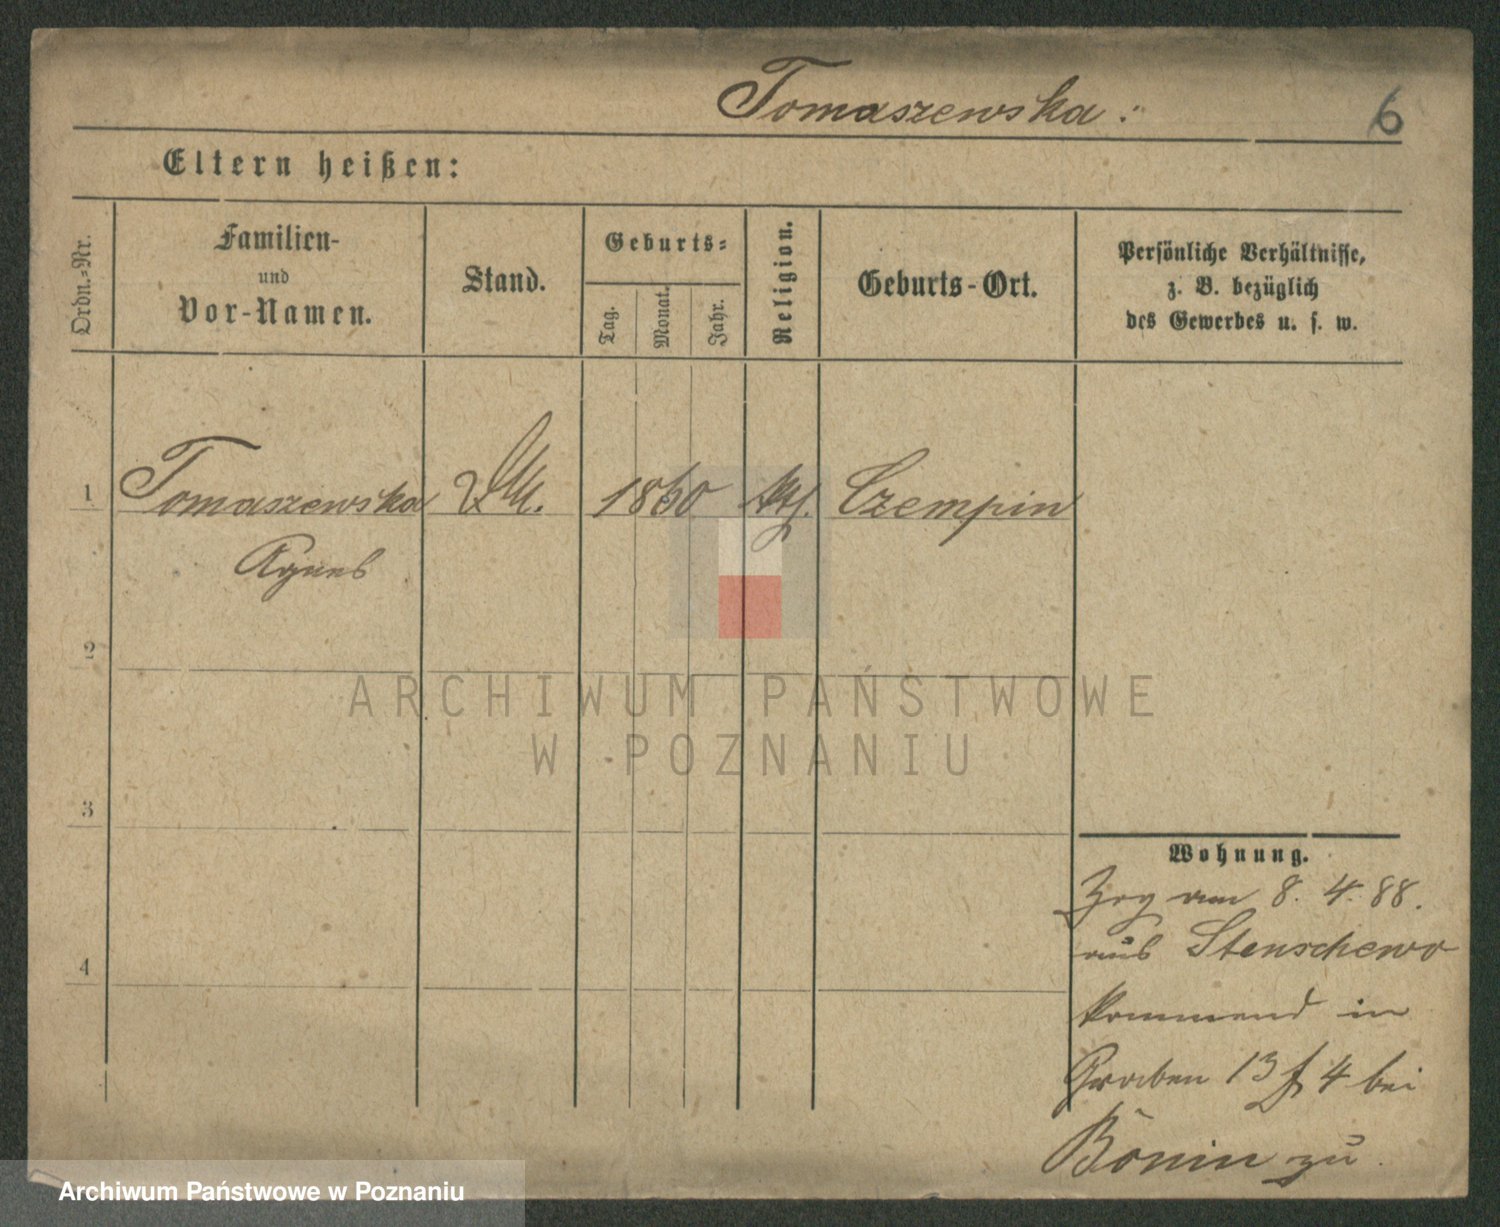 Tomaszewska:
6
Eltern heißen:
Ordn.=Nr.
Familien-
und
Vor-Namen.
Stand.
Geburts=
Tag.
Monat.
Jahr.
Religion.
Geburts-Ort.
Persönliche Verhältnisse,
z. B. bezüglich
des Gewerbes u. s. w.
1 Tomaszewska 1860 kth. Czempin
Agnes
2
3
4
Wohnung.
Zog am 8. 4. 88.
aus Stenschewo
kommend in
Graben 13 4 bei
Bönin zu
ARCHIWUM PAŃSTWOWE
W POZNANIU
Archiwum Państwowe w Poznaniu